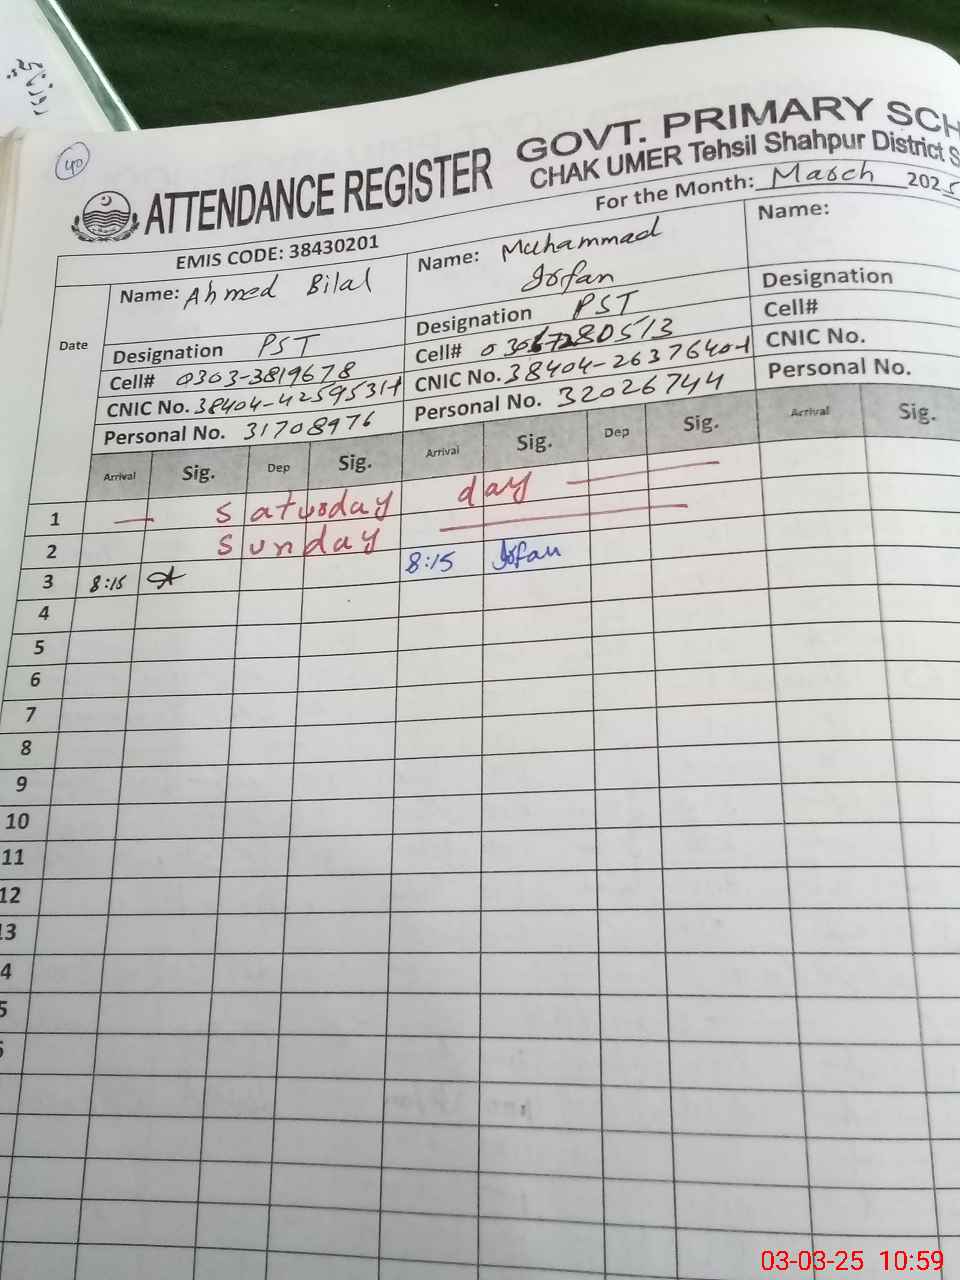 روزنامچ
40
ATTENDANCE REGISTER
GOVT. PRIMARY SCH
CHAK UMER Tehsil Shahpur District S
For the Month: March 2025
EMIS CODE: 38430201
Date
Name: Ahmed Bilal
Designation PST
Cell# 0303-3819678
CNIC No. 38404-4259531-1
Personal No. 31708976
Name: Muhammad
Irfan
Designation PST
Cell#
CNIC No. 38404-2637640-1
Personal No. 32026744
Name:
Designation
Cell#
CNIC No.
Personal No.
Arrival Sig. Dep Sig. Arrival Sig. Dep Sig. Arrival Sig.
1 — Saturday day —
2 Sunday —
3 8:15 8:15 Irfan
4
5
6
7
8
9
10
11
12
13
4
5
03-03-25 10:59